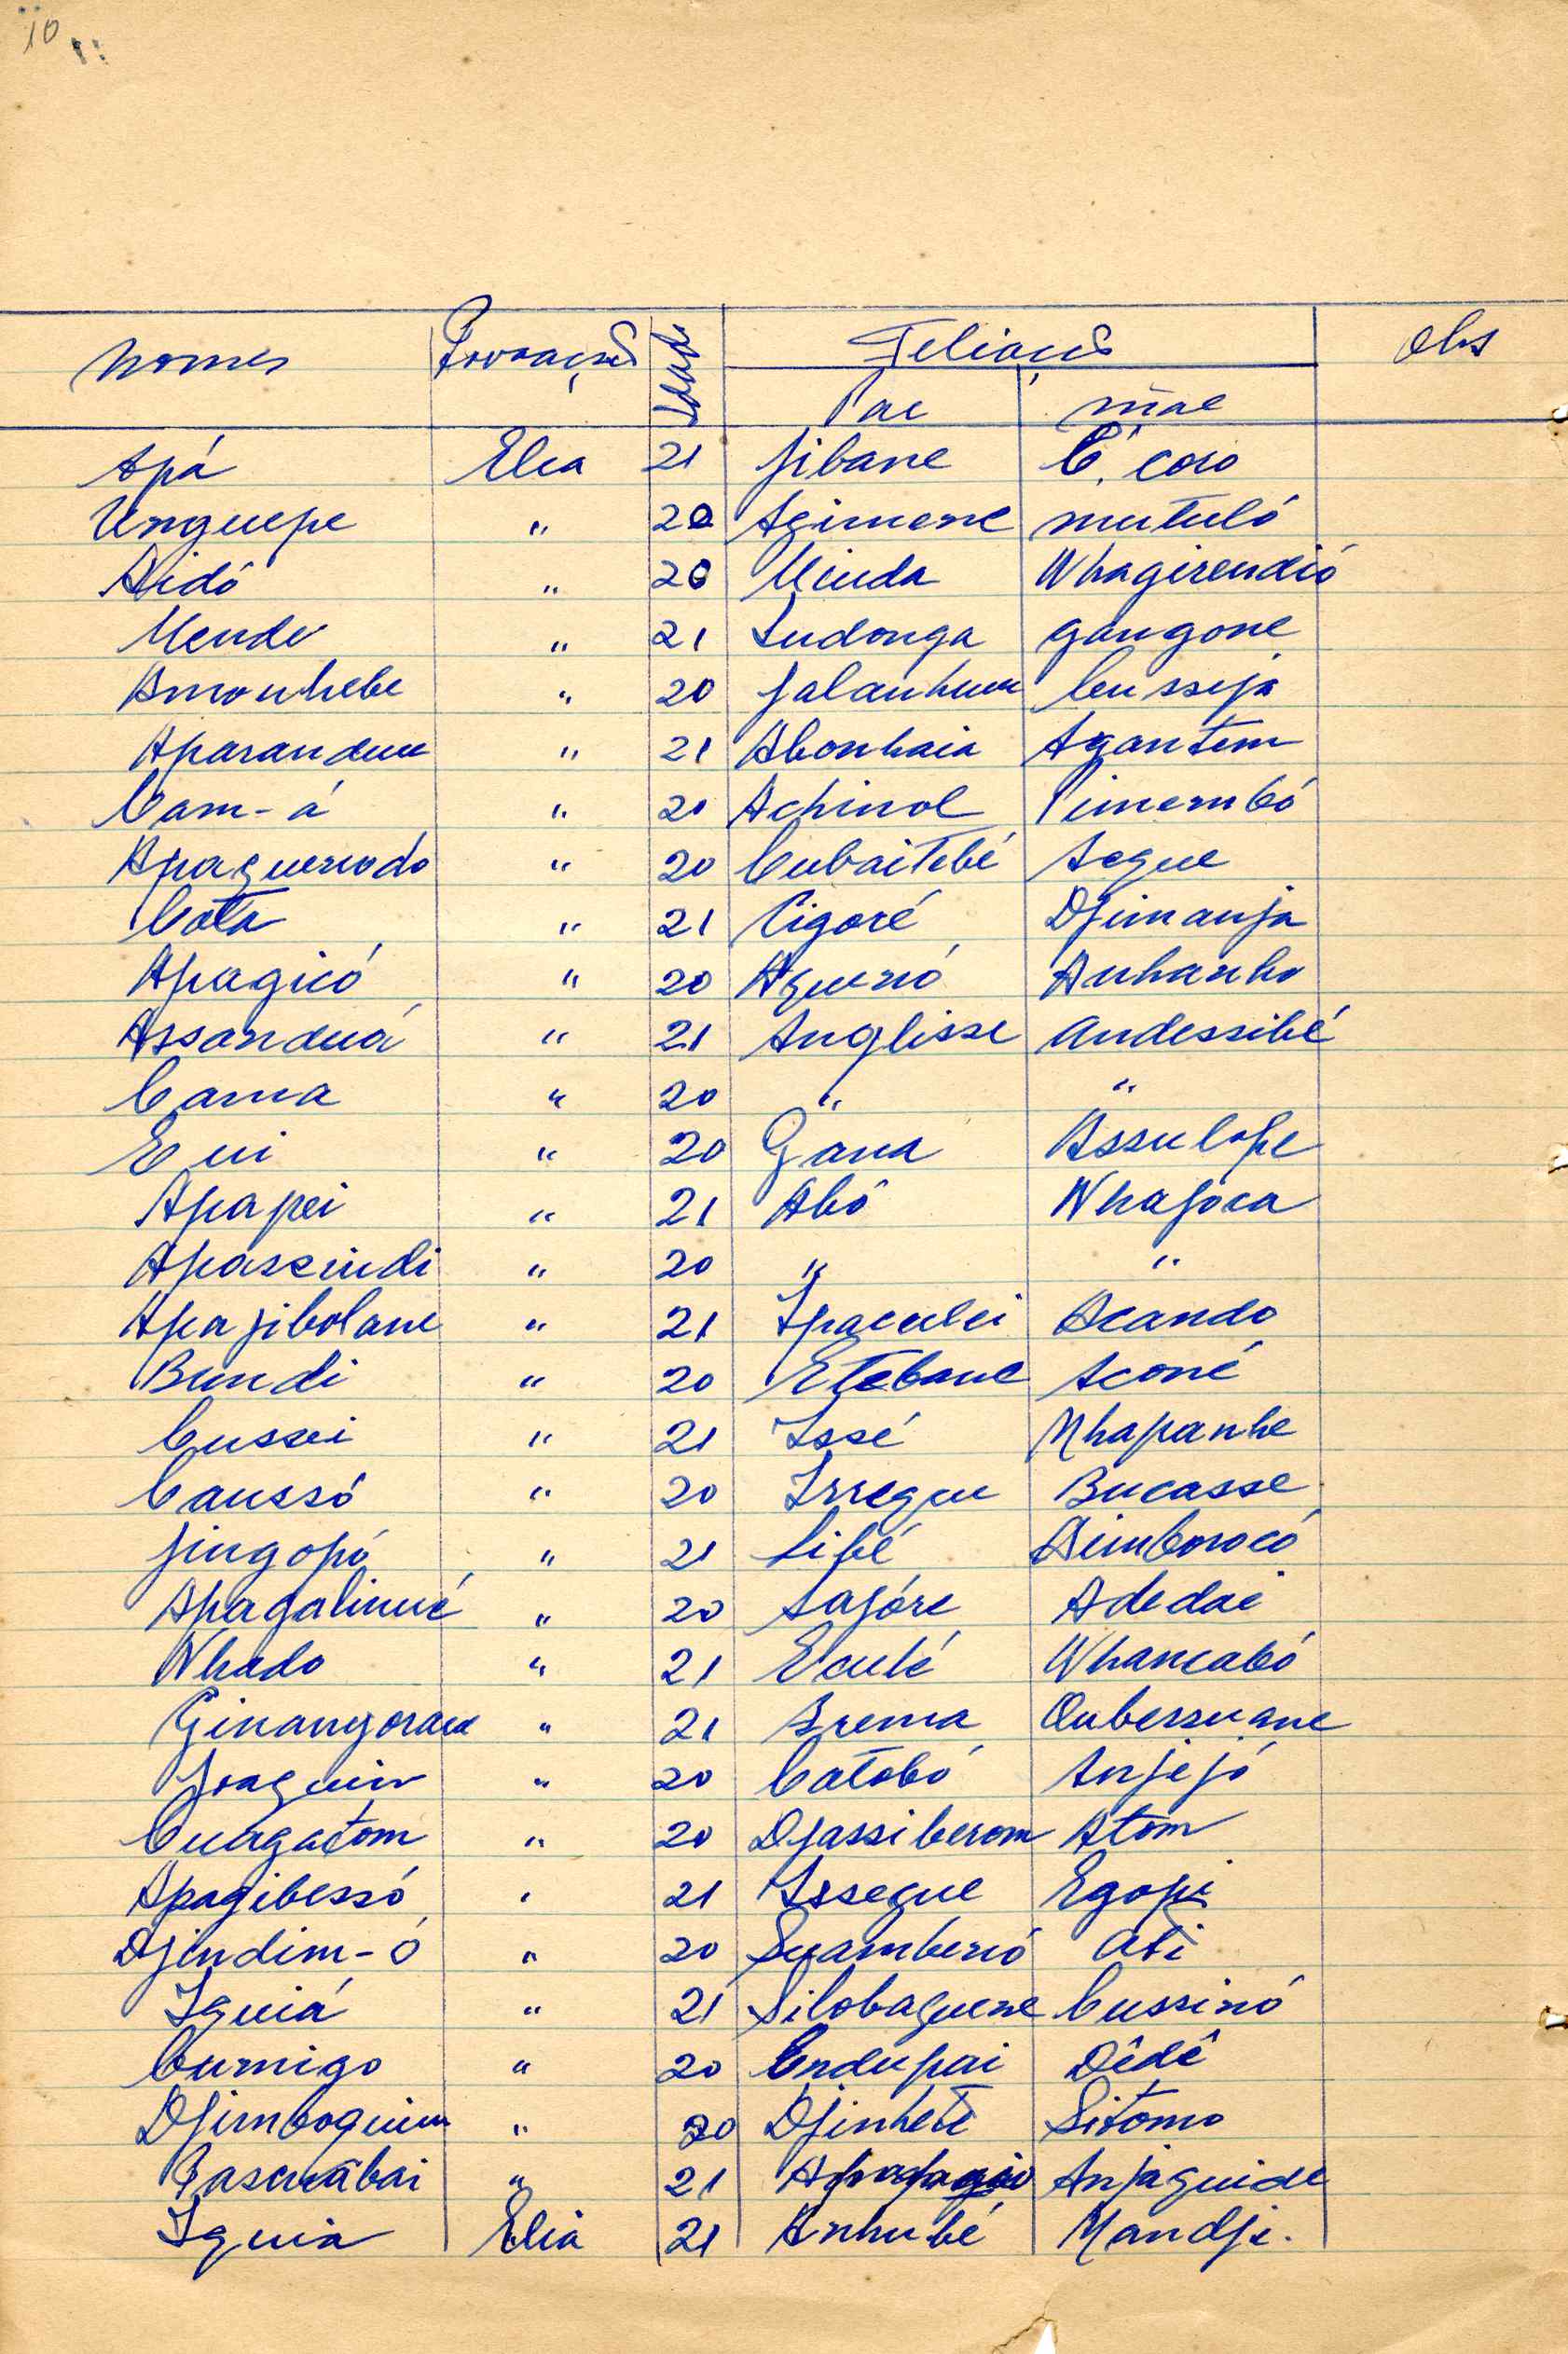 10
Nomes Povoação Idade Feliação Obs
Pae mãe
Apá Elia 21 Jibane C. coro
Unguepe " 20 Agimene mutuló
Aidô " 20 Minda Nhagirendió
Mende " 21 Ludonga gangone
Amonhebe " 20 Jalanhum Cusseja
Aparandum " 21 Abonhaia Agantem
Cam-á " 21 Achinol Pimembó
Apaguenodo " 20 Cubaitebé Segue
Cota " 21 Cigoré Djimanja
Apagicó " 20 Aguenó Anhanho
Assanduá " 21 Anglisse Andessibé
Cama " 20 " "
E ui " 20 Gana Assulope
Apapei " 21 Abó Nhajoca
Apascindi " 20 " "
Apajibolane " 21 Ipaculei Acando
Bundi " 20 Etebane Aconé
Cussei " 21 Issé Nhapanhe
Caussó " 20 Irregu Bucasse
Jingopó " 21 Libé Aimborocó
Apagalinué " 20 Sajóre Adedai
Nhado " 21 Eculé Nhancabó
Ginangorau " 21 Brema Qubessuane
Joaquim " 20 Catobó Anjejó
Cuagatom " 20 Djassiberom Atom
Apagibessó " 21 Issegue Egopi
Djindim-ó " 20 Suamberió Ati
Iguiá " 21 Silobaguene Cussinó
Curnigo " 20 Endupai Dêdê
Djimboquim " 20 Djinhete Sitomo
Bascuabai " 21 Anjaguide
Iguia Elia 21 Anhubé Mandji.